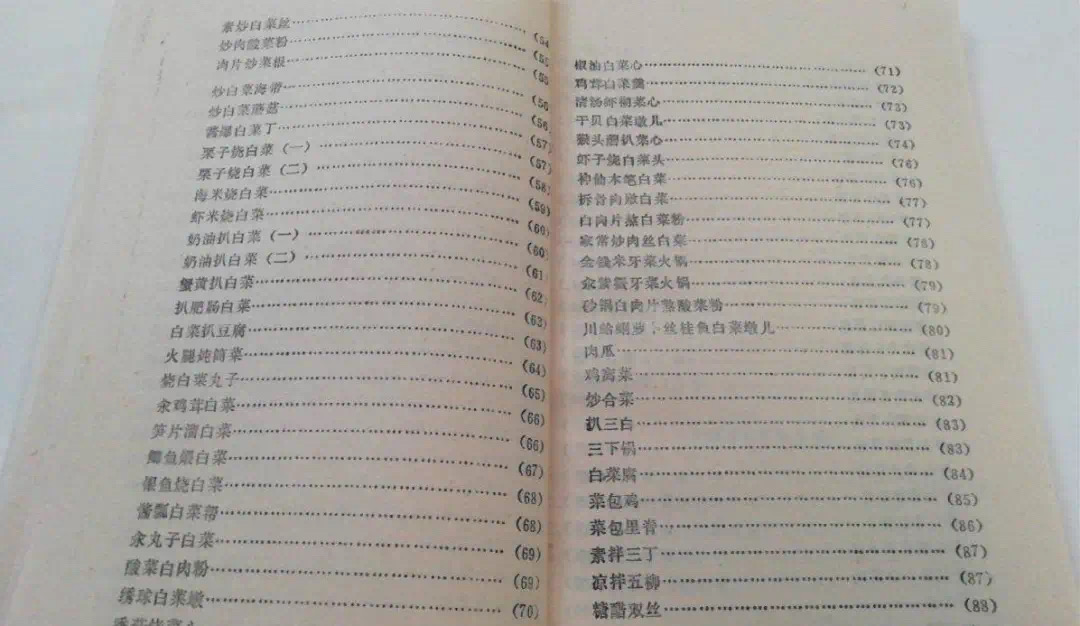 素炒白菜丝……(54)
炒肉酸菜粉……(55)
肉片炒菜根……(55)
炒白菜海带……(56)
炒白菜蘑菇……(56)
酱爆白菜丁……(57)
栗子烧白菜（一）……(57)
栗子烧白菜（二）……(58)
海米烧白菜……(59)
虾米烧白菜……(60)
奶油扒白菜（一）……(60)
奶油扒白菜（二）……(61)
蟹黄扒白菜……(62)
扒肥肠白菜……(62)
白菜扒豆腐……(63)
火腿炖筒菜……(64)
烧白菜丸子……(65)
汆鸡茸白菜……(66)
笋片溜白菜……(66)
鲫鱼煨白菜……(67)
银鱼烧白菜……(68)
酱瓤白菜帮……(68)
汆丸子白菜……(69)
酸菜白肉粉……(69)
绣球白菜墩……(70)
椒油白菜心……(71)
鸡茸白菜羹……(72)
清汤虾捆菜心……(73)
干贝白菜墩儿……(73)
猴头蘑扒菜心……(74)
虾子烧白菜头……(76)
神仙本笔白菜……(76)
拆骨肉墩白菜……(77)
白肉片熬白菜粉……(77)
家常炒肉丝白菜……(78)
金钱米牙菜火锅……(78)
汆紫蟹牙菜火锅……(79)
砂锅白肉片熬酸菜粉……(79)
川蛤蜊萝卜丝桂鱼白菜墩儿……(80)
肉瓜……(81)
鸡窝菜……(81)
炒合菜……(82)
扒三白……(83)
三下锅……(83)
白菜腐……(84)
菜包鸡……(85)
菜包里脊……(86)
素拌三丁……(87)
凉拌五柳……(87)
糖醋双丝……(88)